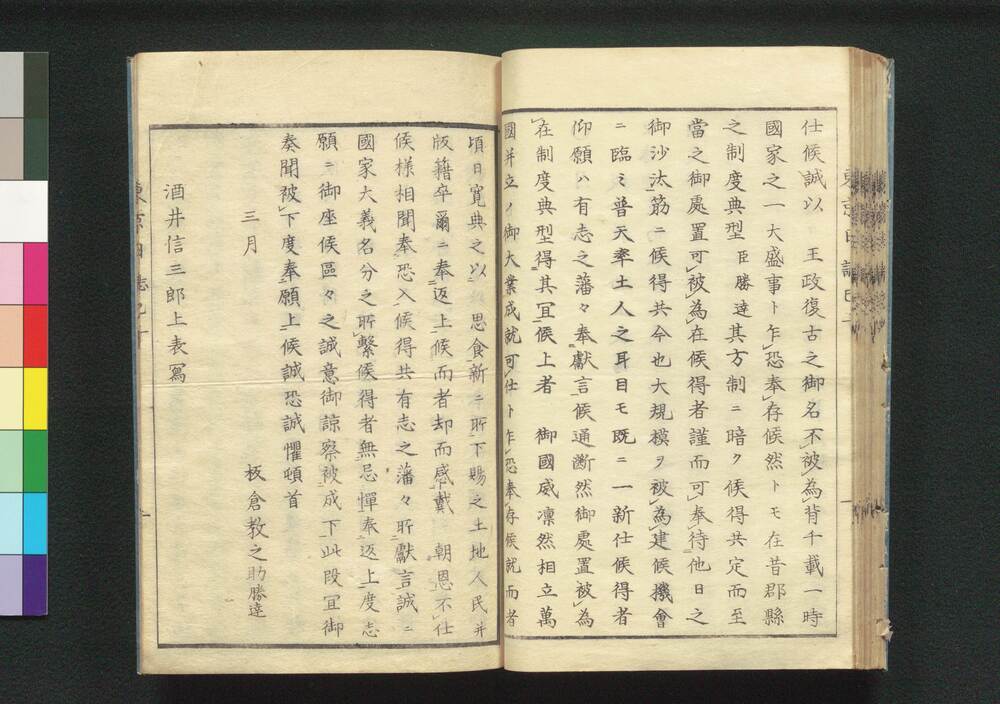 仕候誠以　王政復古之御名不被為背千載一時
國家之一大盛事ト乍恐奉存候然トモ在昔郡縣
之制度典型臣勝達其方制ニ暗ク候得共定而至
當之御處置可被為在候得者謹而可奉待他日之
御沙汰筋ニ候得共今也大規模ヲ被為建候機會
ニ臨ミ普天率土人之耳目モ既ニ一新仕候得者
仰願ハ有志之藩々奉獻言候通斷然御處置被為
在制度典型得其冝候上者　御國威凛然相立萬
國并立ノ御大業成就可仕ト乍恐奉存候就而者
頃日寛典之以思食新ニ所下賜之土地人民并
版籍卒爾ニ奉返上候而者却而感戴　朝恩不仕
候様相聞奉恐入候得共有志之藩々所獻言誠ニ
國家大義名分之所繫候得者無忌憚奉返上度志
願ニ御座候區々之誠意御諒察被成下此段冝御
奏聞被下度奉願上候誠恐誠懼頓首
三月
板倉教之助勝達
酒井信三郎上表寫